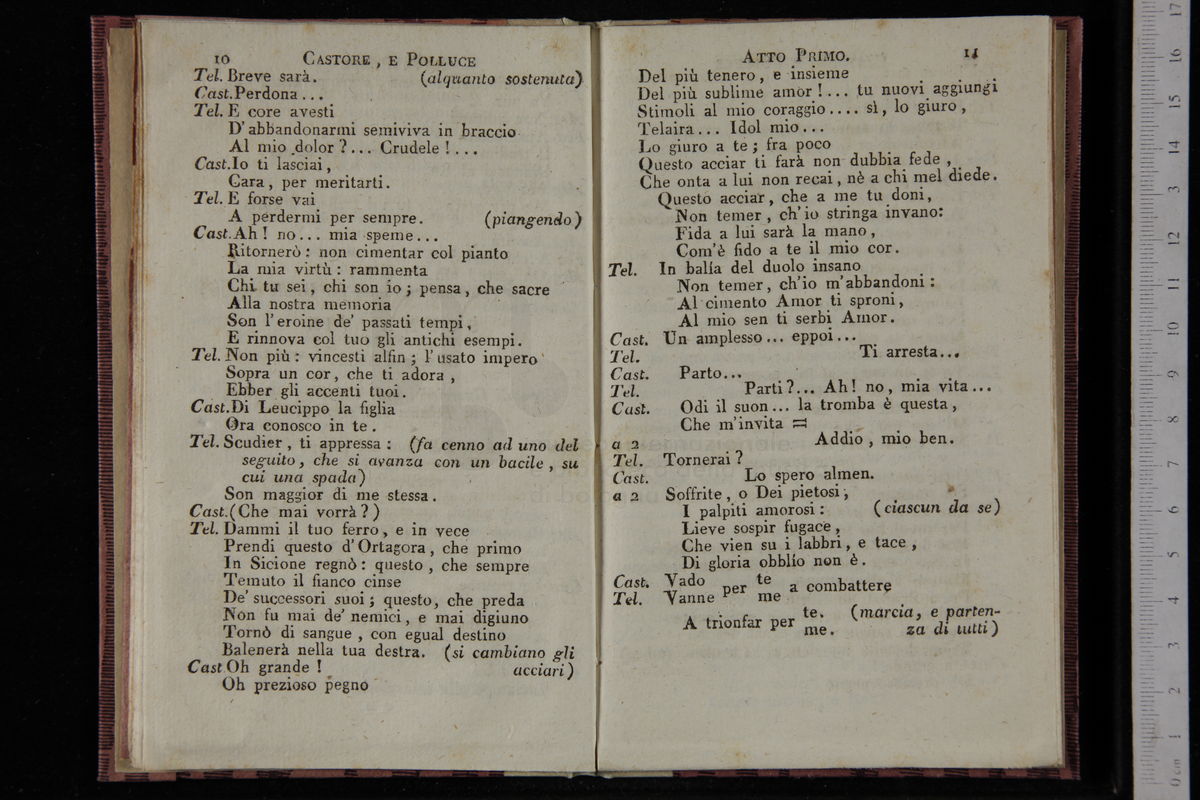 10 CASTORE, E POLLUCE
Tel. Breve sarà. (alquanto sostenuta)
Cast. Perdona...
Tel. E core avesti
D'abbandonarmi semiviva in braccio
Al mio dolor?... Crudele!...
Cast. Io ti lasciai,
Cara, per meritarti.
Tel. E forse vai
A perdermi per sempre. (piangendo)
Cast. Ah! no... mia speme...
Ritornerò: non cimentar col pianto
La mia virtù: rammenta
Chi tu sei, chi son io; pensa, che sacre
Alla nostra memoria
Son l'eroine de' passati tempi,
E rinnova col tuo gli antichi esempi.
Tel. Non più: vincesti alfin; l'usato impero
Sopra un cor, che ti adora,
Ebber gli accenti tuoi.
Cast. Di Leucippo la figlia
Ora conosco in te.
Tel. Scudier, ti appressa: (fa cenno ad uno del
seguito, che si avanza con un bacile, su
cui una spada)
Son maggior di me stessa.
Cast. (Che mai vorrà?)
Tel. Dammi il tuo ferro, e in vece
Prendi questo d'Ortagora, che primo
In Sicione regnò: questo, che sempre
Temuto il fianco cinse
De' successori suoi; questo, che preda
Non fu mai de' nemici, e mai digiuno
Tornò di sangue, con egual destino
Balenerà nella tua destra. (si cambiano gli
Cast Oh grande! acciari)
Oh prezioso pegno
ATTO PRIMO. 11
Del più tenero, e insieme
Del più sublime amor!... tu nuovi aggiungi
Stimoli al mio coraggio.... sì, lo giuro,
Telaira... Idol mio...
Lo giuro a te; fra poco
Questo acciar ti farà non dubbia fede,
Che onta a lui non recai, nè a chi mel diede.
Questo acciar, che a me tu doni,
Non temer, ch'io stringa invano:
Fida a lui sarà la mano,
Com'è fido a te il mio cor.
Tel. In balía del duolo insano
Non temer, ch'io m'abbandoni:
Al cimento Amor ti sproni,
Al mio sen ti serbi Amor.
Cast. Un amplesso... eppoi...
Tel. Ti arresta...
Cast. Parto...
Tel. Parti?... Ah! no, mia vita...
Cast. Odi il suon... la tromba è questa,
Che m'invita =
a 2 Addio, mio ben.
Tel. Tornerai?
Cast. Lo spero almen.
a 2 Soffrite, o Dei pietosi,
I palpiti amorosi: (ciascun da se)
Lieve sospir fugace,
Che vien su i labbri, e tace,
Di gloria obblío non è.
Cast. Vado per te a combattere
Tel. Vanne per me a combattere
A trionfar per te. (marcia, e parten-
me. za di tutti)